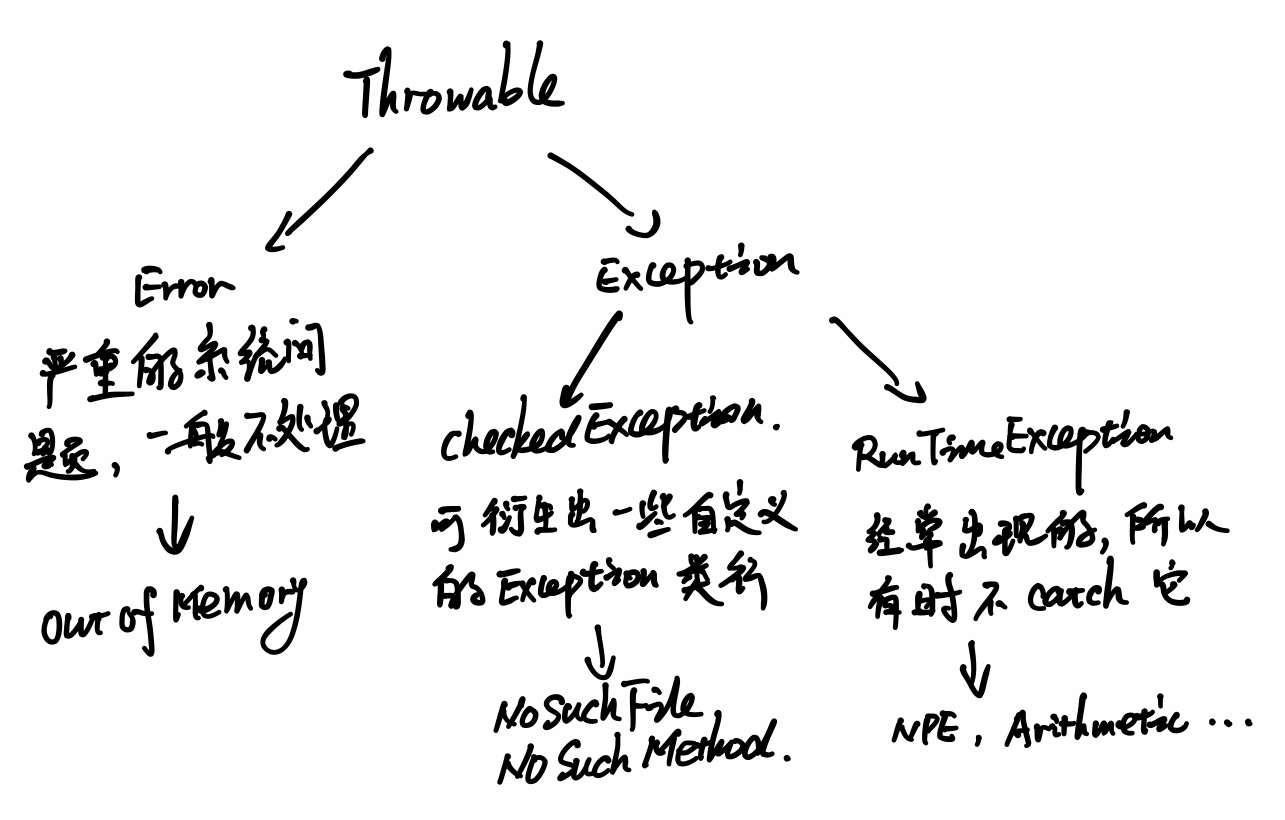 Throwable
Error
严重的系统问
题,一般不处理
Out of Memory
Exception
checkedException.
可衍生出一些自定义
的Exception类型
NoSuchFile,
NoSuchMethod.
RunTimeException
经常出现的,所以
有时不catch它
NPE, Arithmetic ...